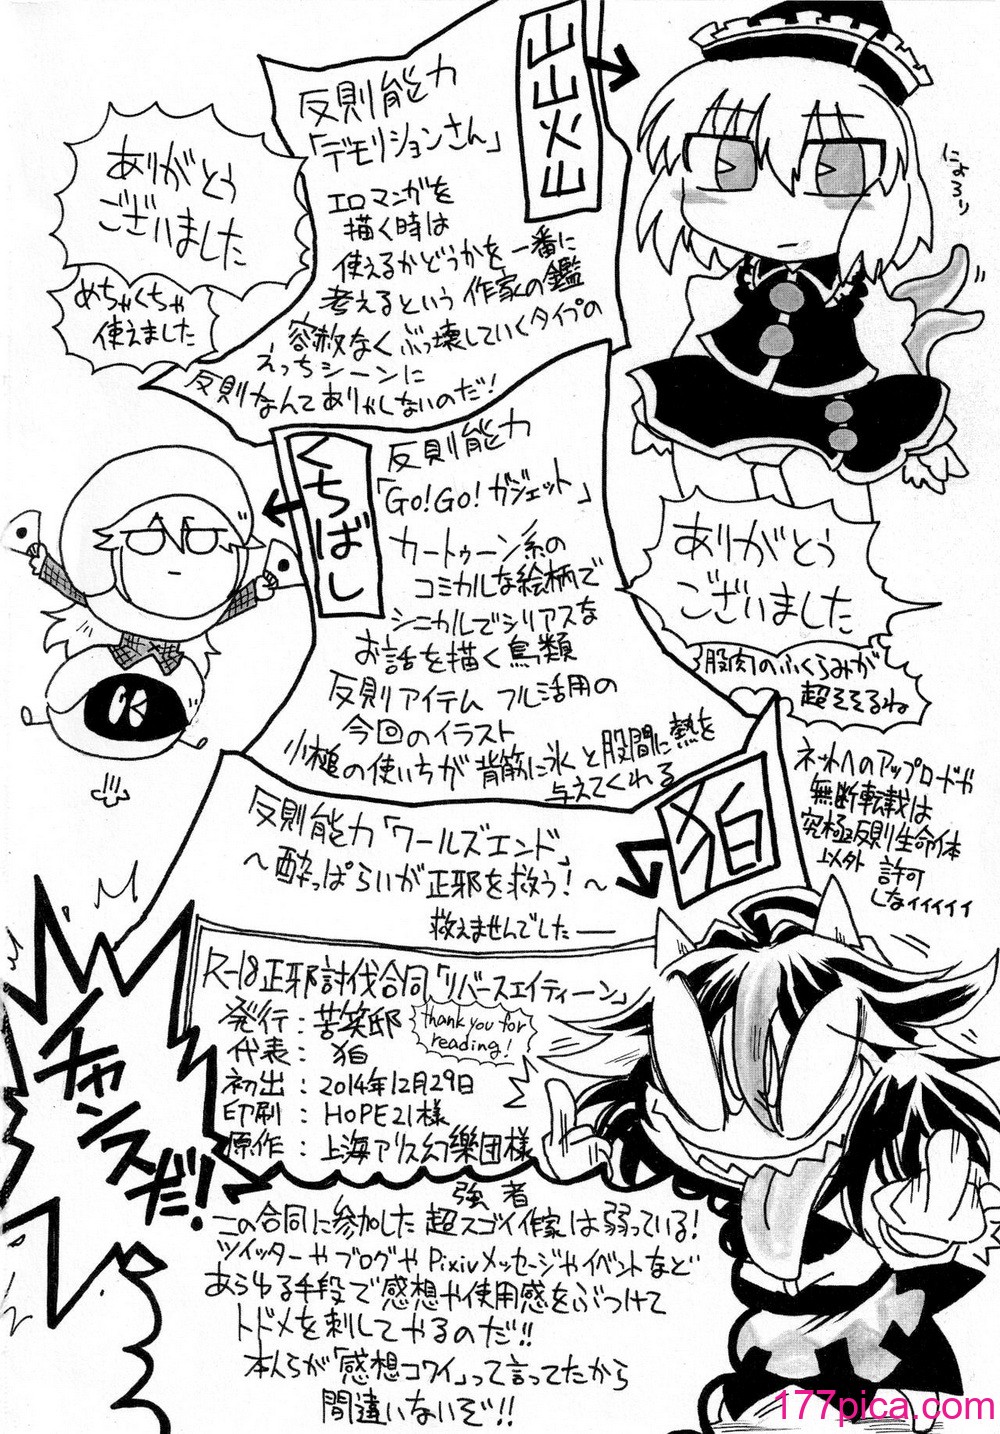 山出火山
反則能力
「デモリションさん」
エロマンガを
描く時は
使えるかどうかを一番に
考えるという作家の鑑
容赦なくぶっ壊していくタイプの
えっちシーンに
反則なんてありゃしないのだ!
ありがとう
ございました
めちゃくちゃ
使えました
にょろり
くちばし
反則能力
「Go!Go!ガジェット」
カートゥーン系の
コミカルな絵柄で
シニカルでシリアスな
お話を描く鳥類
反則アイテム フル活用の
今回のイラスト
小槌の使いちが背筋に氷と股間に熱を
与えてくれる
K
ありがとう
ございました
股肉のふくらみが
超そそるね
ネットへのアップロードや
無断転載は
究極反則生命体
以外 許可
しなィィィィィ
狛
反則能力「ワールズエンド」
～酔っぱらいが正邪を救う!～
救えませんでした――
R-18正邪討伐合同「リバースエイティーン」
発行:苦笑邸
代表:狛
初出:2014年12月29日
印刷:HOPE21様
原作:上海アリス幻樂団様
thank you for
reading!
チャンスだ!
強者
この合同に参加した超スゴイ作家は弱っている!
ツイッターやブログやPixivメッセージやイベントなど
あらゆる手段で感想や使用感をぶつけて
トドメを刺してやるのだ!!
本人らが「感想コワイ」って言ってたから
間違いないぞ!!
177pica.com